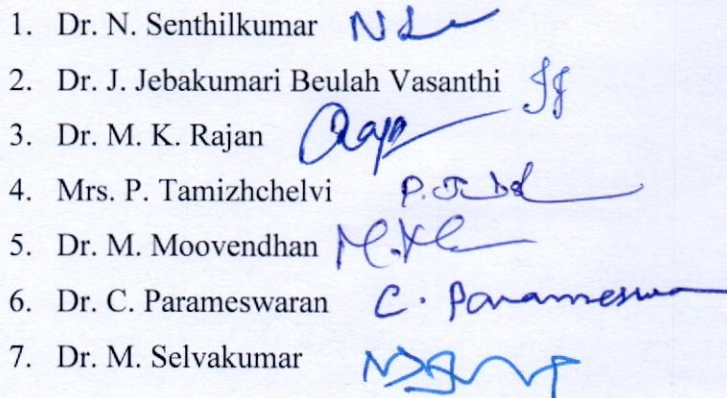 1. Dr. N. Senthilkumar
2. Dr. J. Jebakumari Beulah Vasanthi
3. Dr. M. K. Rajan
4. Mrs. P. Tamizhchelvi
5. Dr. M. Moovendhan
6. Dr. C. Parameswaran C. Parameswa
7. Dr. M. Selvakumar